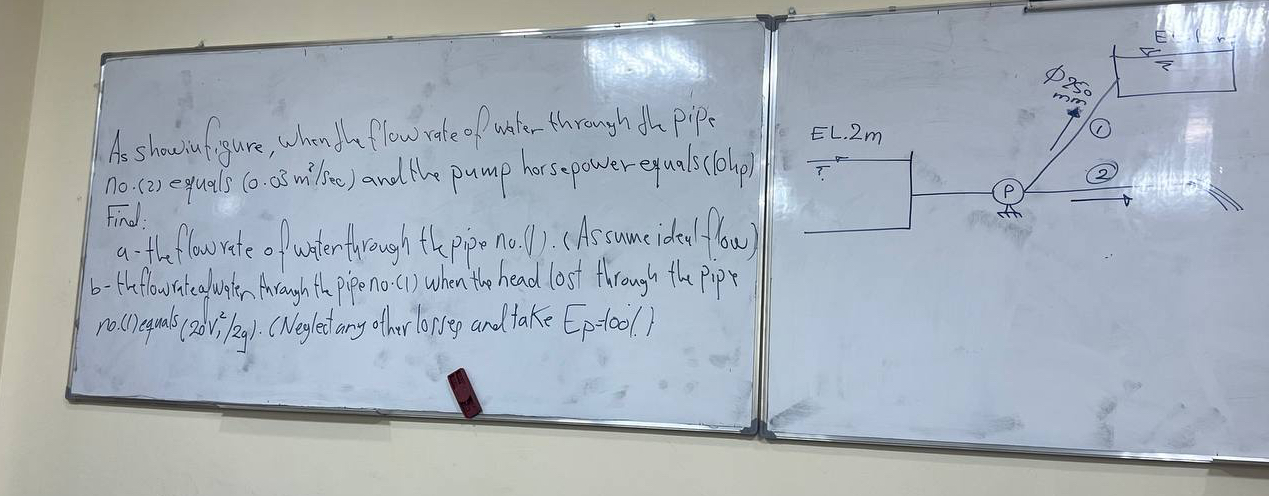 As show in figure, when the flow rate of water through the pipe
no.(2) equals (0.03 m³/sec) and the pump horsepower equals (10hp)
Find:
a- the flow rate of water through the pipe no.(1). (Assume ideal flow)
b- the flow rate of water through the pipe no.(1) when the head lost through the pipe
no.(1) equals (20V₁²/2g). (Neglect any other losses and take Ep=100%)
EL.2m
P
Ø250
mm
1
2